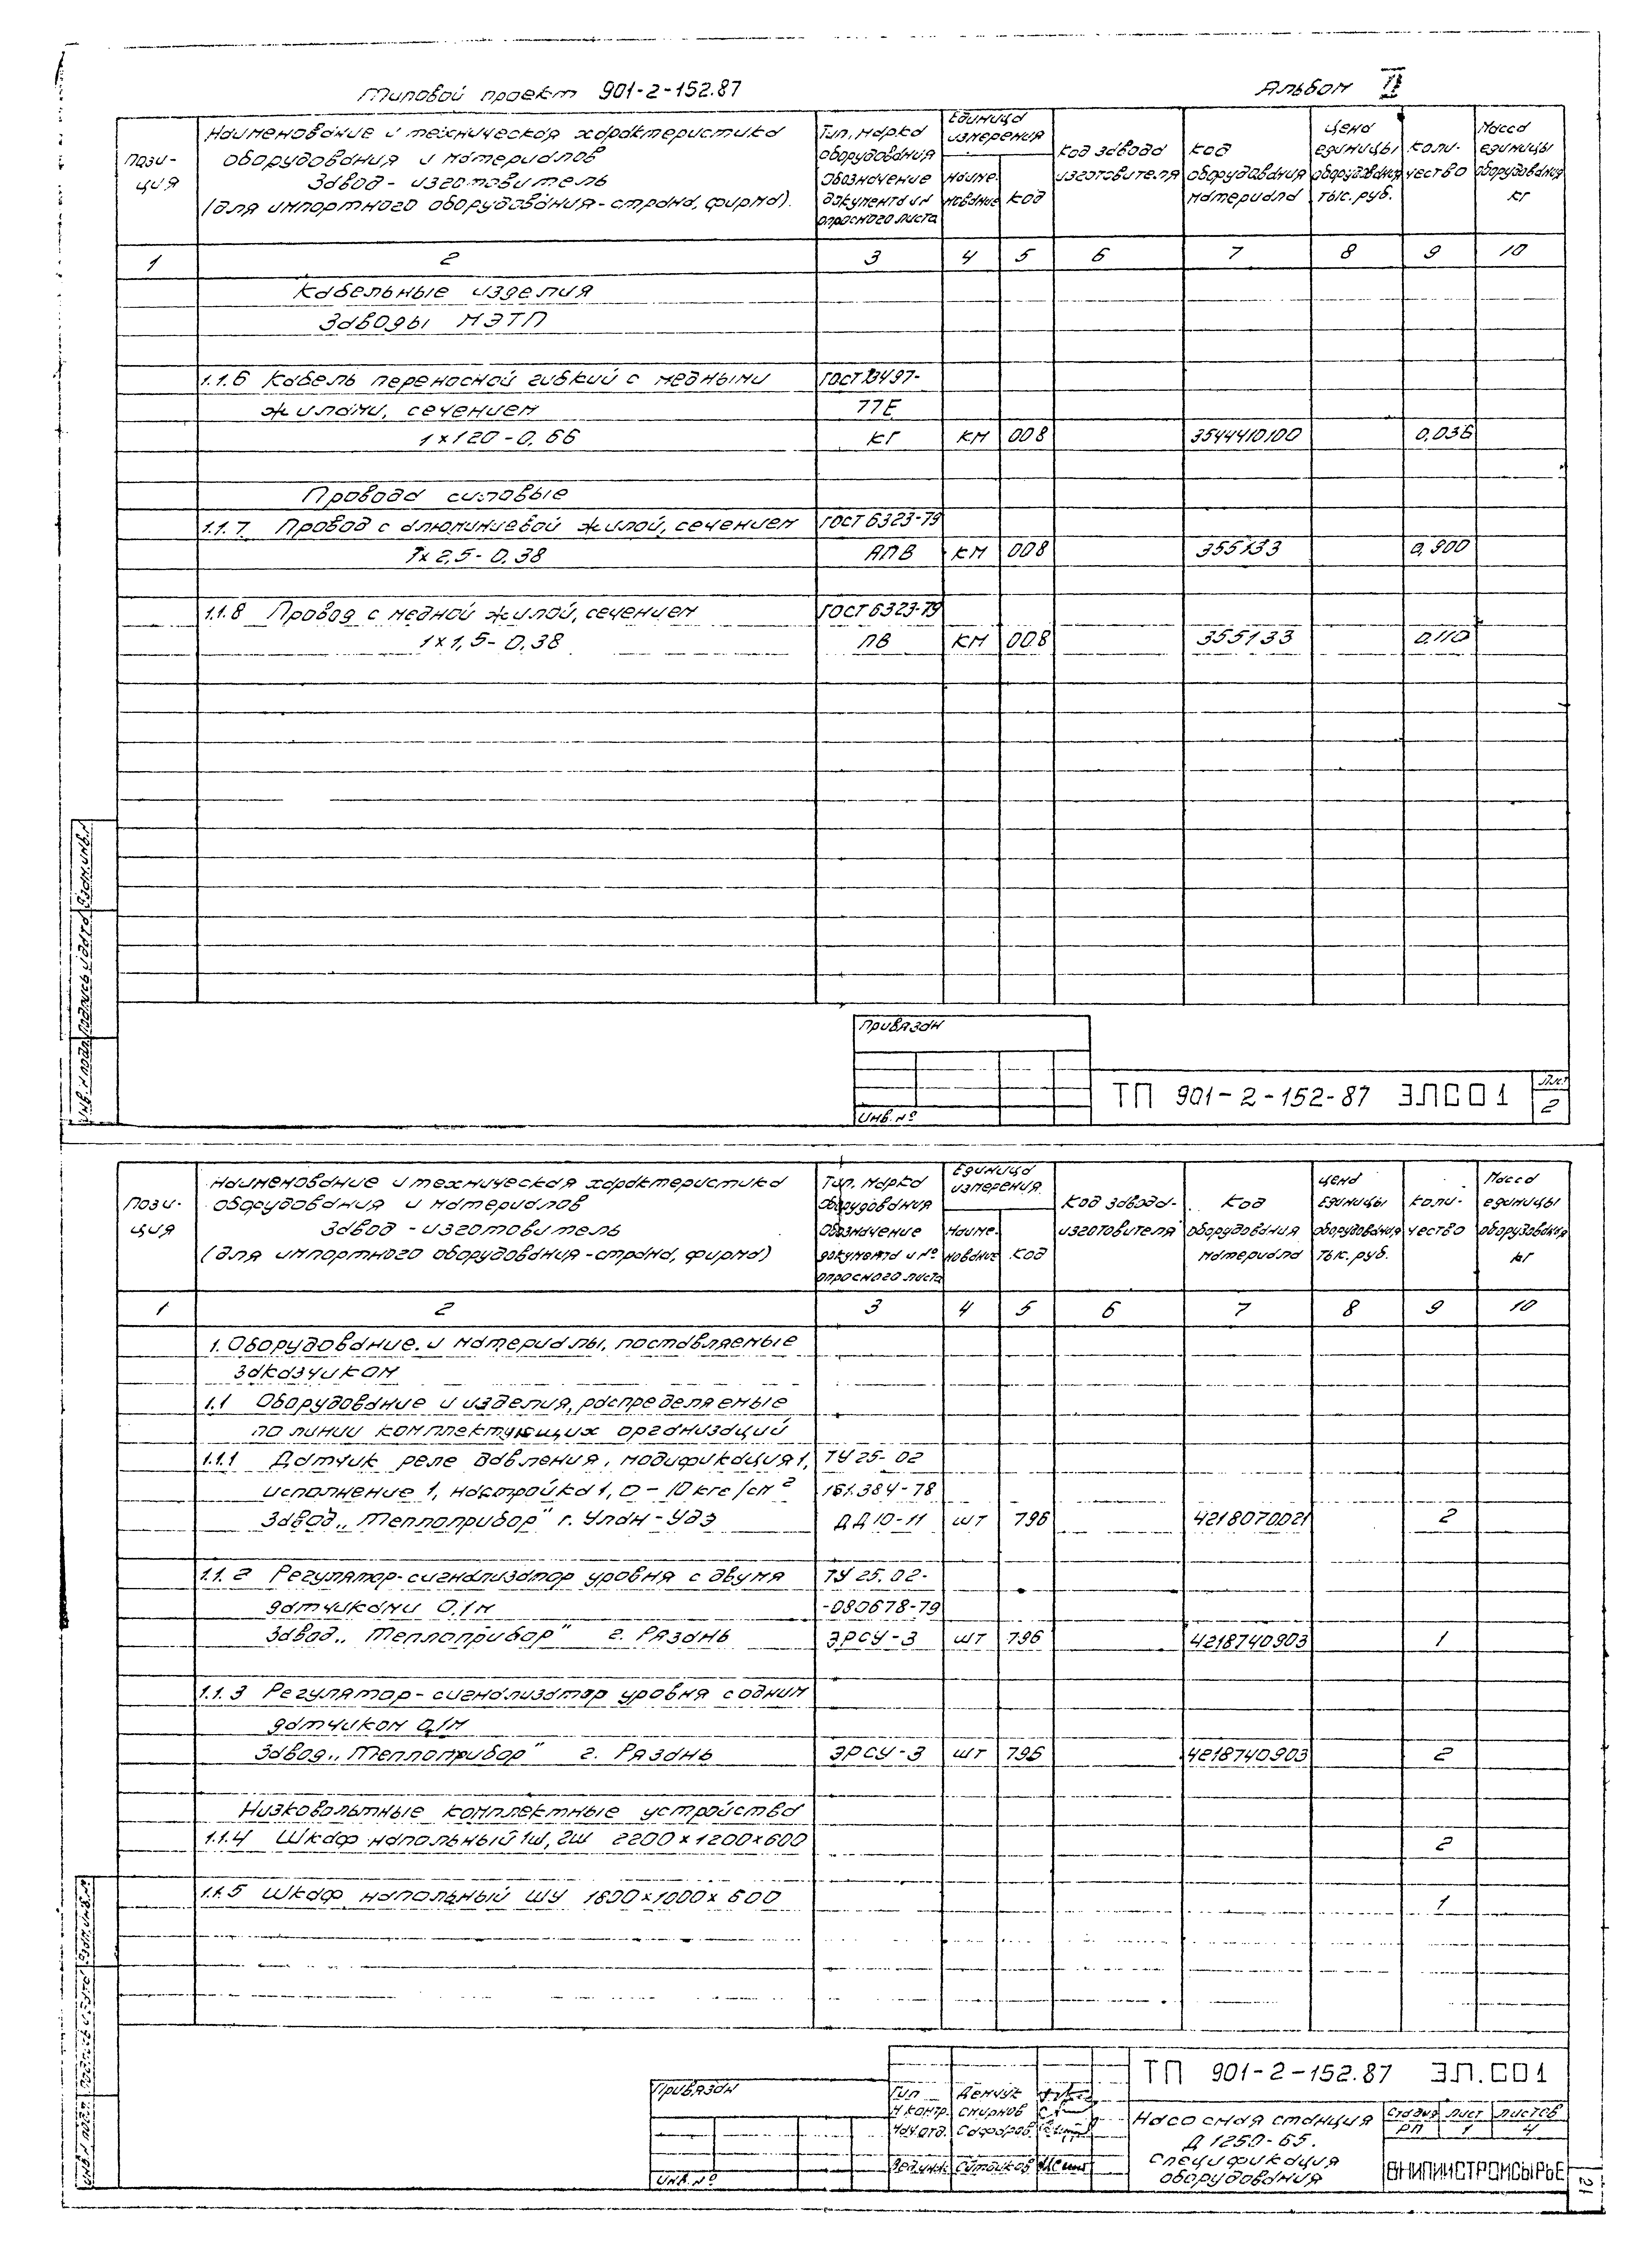 Типовой проект 901-2-152.87
Альбом II
пози-
ция
Наименование и техническая характеристика
оборудования и материалов
Завод-изготовитель
(для импортного оборудования-страна, фирма).
Тип, марка
оборудования
Обозначение
документа и №
опросного листа
Единица
измерения
наиме-
нование
код
код завода
изготовителя
код
оборудования
материала
цена
единицы
оборудования
тыс.руб.
коли-
чество
Масса
единицы
оборудования
кг
1 2 3 4 5 6 7 8 9 10
Кабельные изделия
Заводы МЭТП
1.1.6 Кабель переносной гибкий с медными ГОСТ 13497-
жилами, сечением 77Е
1×120-0,66 КГ КМ 008 3544410100 0,036
Провода силовые
1.1.7 Провод с алюминиевой жилой, сечением ГОСТ 6323-79
1×2,5-0,38 АПВ КМ 008 355133 0,900
1.1.8 Провод с медной жилой, сечением ГОСТ 6323-79
1×1,5-0,38 ПВ КМ 008 355133 0,110
Взам.инв.№
Подпись и дата
Инв.№ подл.
Привязан
Инв.№
ТП 901-2-152-87 ЭЛСО1
Лист
2
пози-
ция
Наименование и техническая характеристика
оборудования и материалов
Завод-изготовитель
(для импортного оборудования-страна, фирма)
Тип, марка
оборудования
Обозначение
документа и №
опросного листа
Единица
измерения
Наиме-
нование
код
код завода-
изготовителя
код
оборудования
материала
цена
единицы
оборудования
тыс.руб.
коли-
чество
Масса
единицы
оборудования
кг
1 2 3 4 5 6 7 8 9 10
1. Оборудование и материалы, поставляемые
заказчиком
1.1 Оборудование и изделия, распределяемые
по линии комплектующих организаций
1.1.1 Датчик реле давления, модификация 1, ТУ 25-02
исполнение 1, настройка 1, 0-10 кгс/см² 161.384-78
Завод „Теплоприбор" г. Улан-Удэ ДД10-11 шт 796 4218070021 2
1.1.2 Регулятор-сигнализатор уровня с двумя ТУ 25.02-
датчиками 0,1м -080678-79
Завод „Теплоприбор" г. Рязань ЭРСУ-3 шт 796 4218740903 1
1.1.3 Регулятор-сигнализатор уровня с одним
датчиком 0,1м
Завод „Теплоприбор" г. Рязань ЭРСУ-3 шт 796 4218740903 2
Низковольтные комплектные устройства
1.1.4 Шкаф напольный 1ш, 2ш 2200×1200×600 2
1.1.5 Шкаф напольный ШУ 1600×1000×600 1
Взам.инв.№
Подпись и дата
Инв.№ подл.
Привязан
Инв.№
Гип Демчук
Н.контр. Смирнов
Нач.отд. Сафоров
Вед.инж. Ситников
ТП 901-2-152.87 ЭЛ.СО1
Насосная станция
Д 1250-65.
Спецификация
оборудования
Стадия Лист Листов
РП 1 4
ВНИПИИСТРОМСЫРЬЕ
21